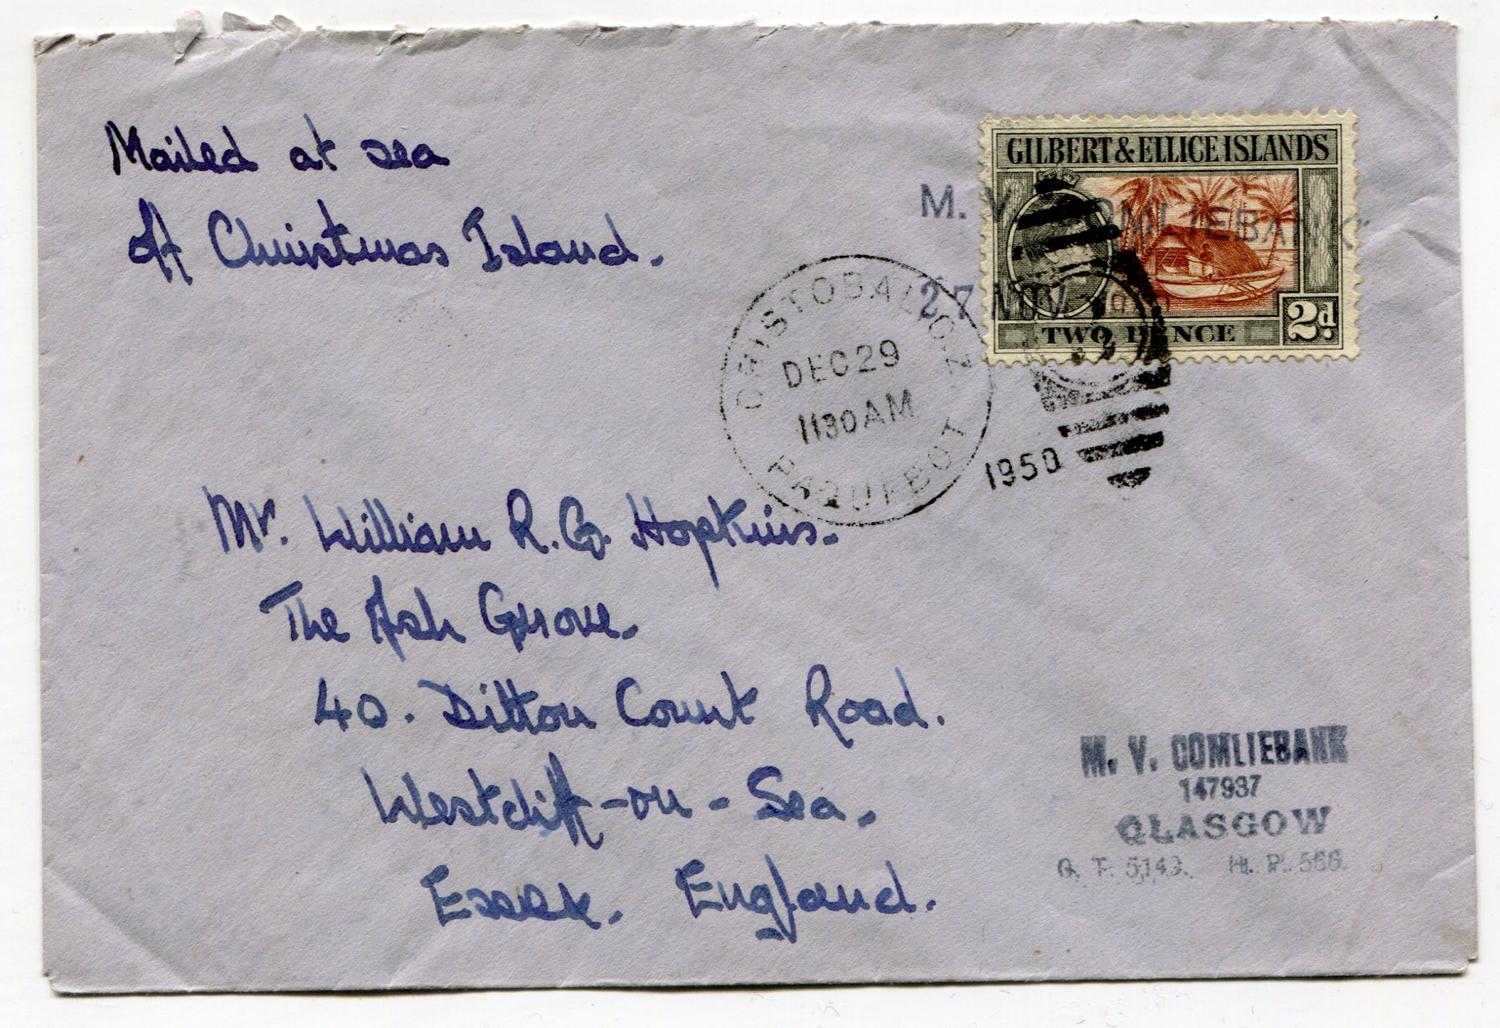 Mailed at sea
off Christmas Island.
GILBERT & ELLICE ISLANDS
M. V. COMLIEBANK
27 NOV 1950
TWO PENCE
2d.
CRISTOBAL, C.Z.
DEC 29
1130 AM
PAQUEBOT
1950
Mr. William R. G. Hopkins.
The Ash Grove.
40. Ditton Court Road.
Westcliff-on-Sea.
Essex. England.
M. V. COMLIEBANK
147937
GLASGOW
G. T. 5149. H. P. 566.